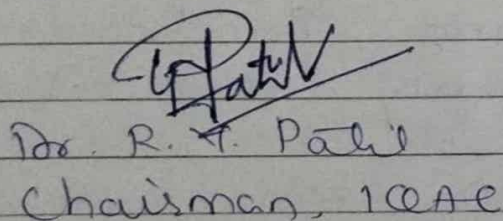 Patil
Dr. R. Y. Patil
Chairman, IQAC